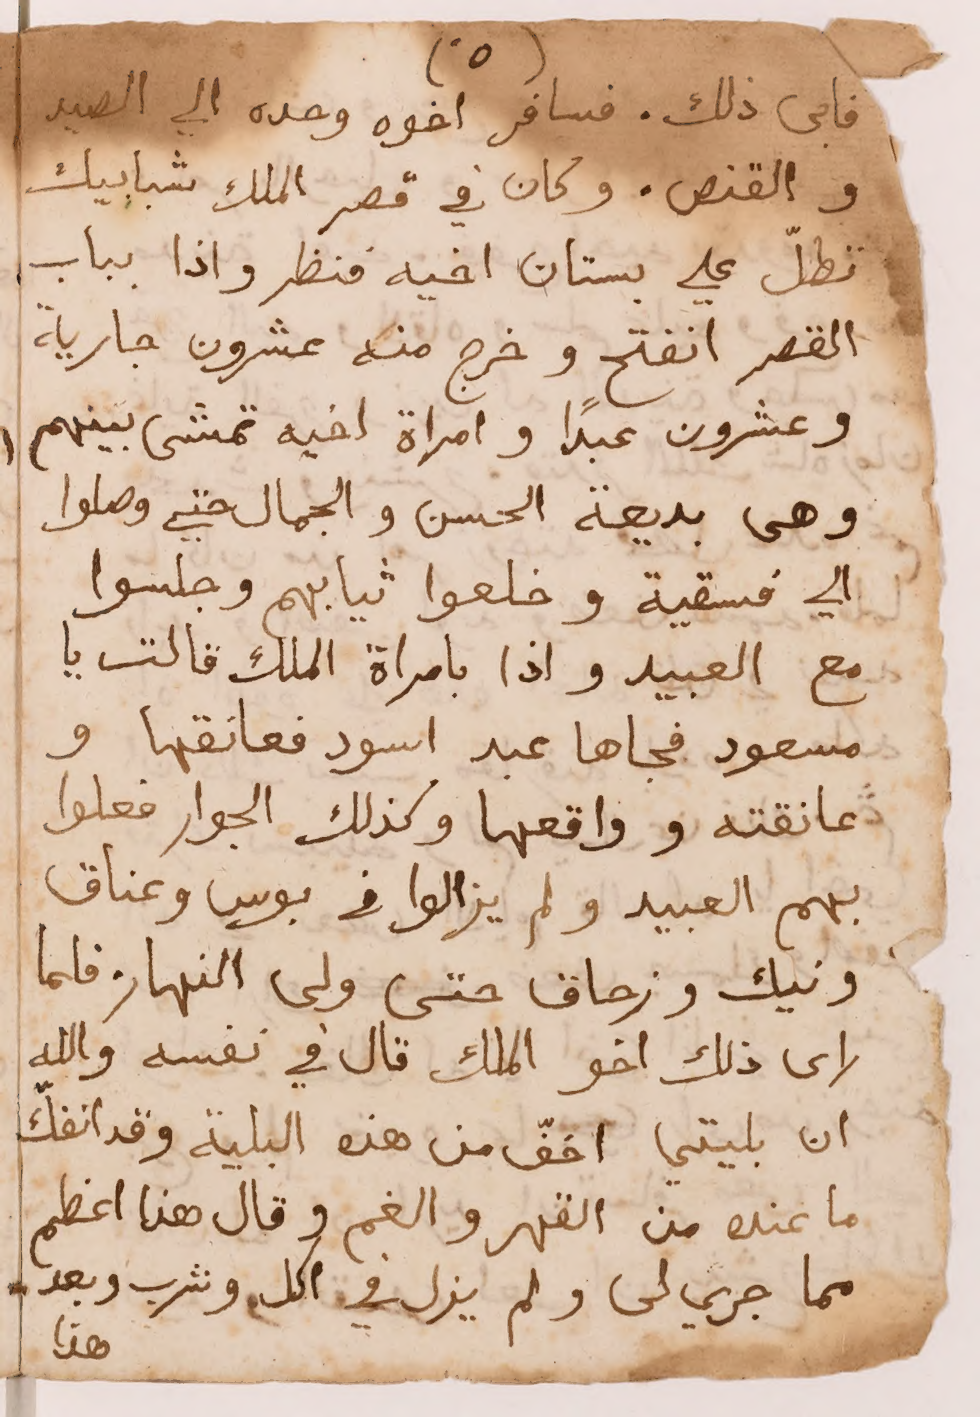 (٥)
فابى ذلك . فسافر اخوه وحده الي الصيد
و القنص . وكان في قصر الملك شبابيك
تطلّ علي بستان اخيه فنظر واذا بباب
القصر انفتح و خرج منه عشرون جارية
وعشرون عبدًا و امراة اخيه تمشى بينهم
وهى بديعة الحسن و الجمال حتي وصلوا
الي فسقية و خلعوا ثيابهم وجلسوا
مع العبيد و اذا بامراة الملك قالت يا
مسعود فجاها عبد اسود فعانقها و
عانقته و واقعها وكذلك الجوار فعلوا
بهم العبيد و لم يزالوا في بوس وعناق
ونيك وزحاق حتى ولى النهار . فلما
راى ذلك اخو الملك قال في نفسه والله
ان بليتي اخفّ من هذه البلية وقد انفكّ
ما عنده من القهر و الغم و قال هذا اعظم
مما جري لى و لم يزل في اكل و شرب وبعد
هذا